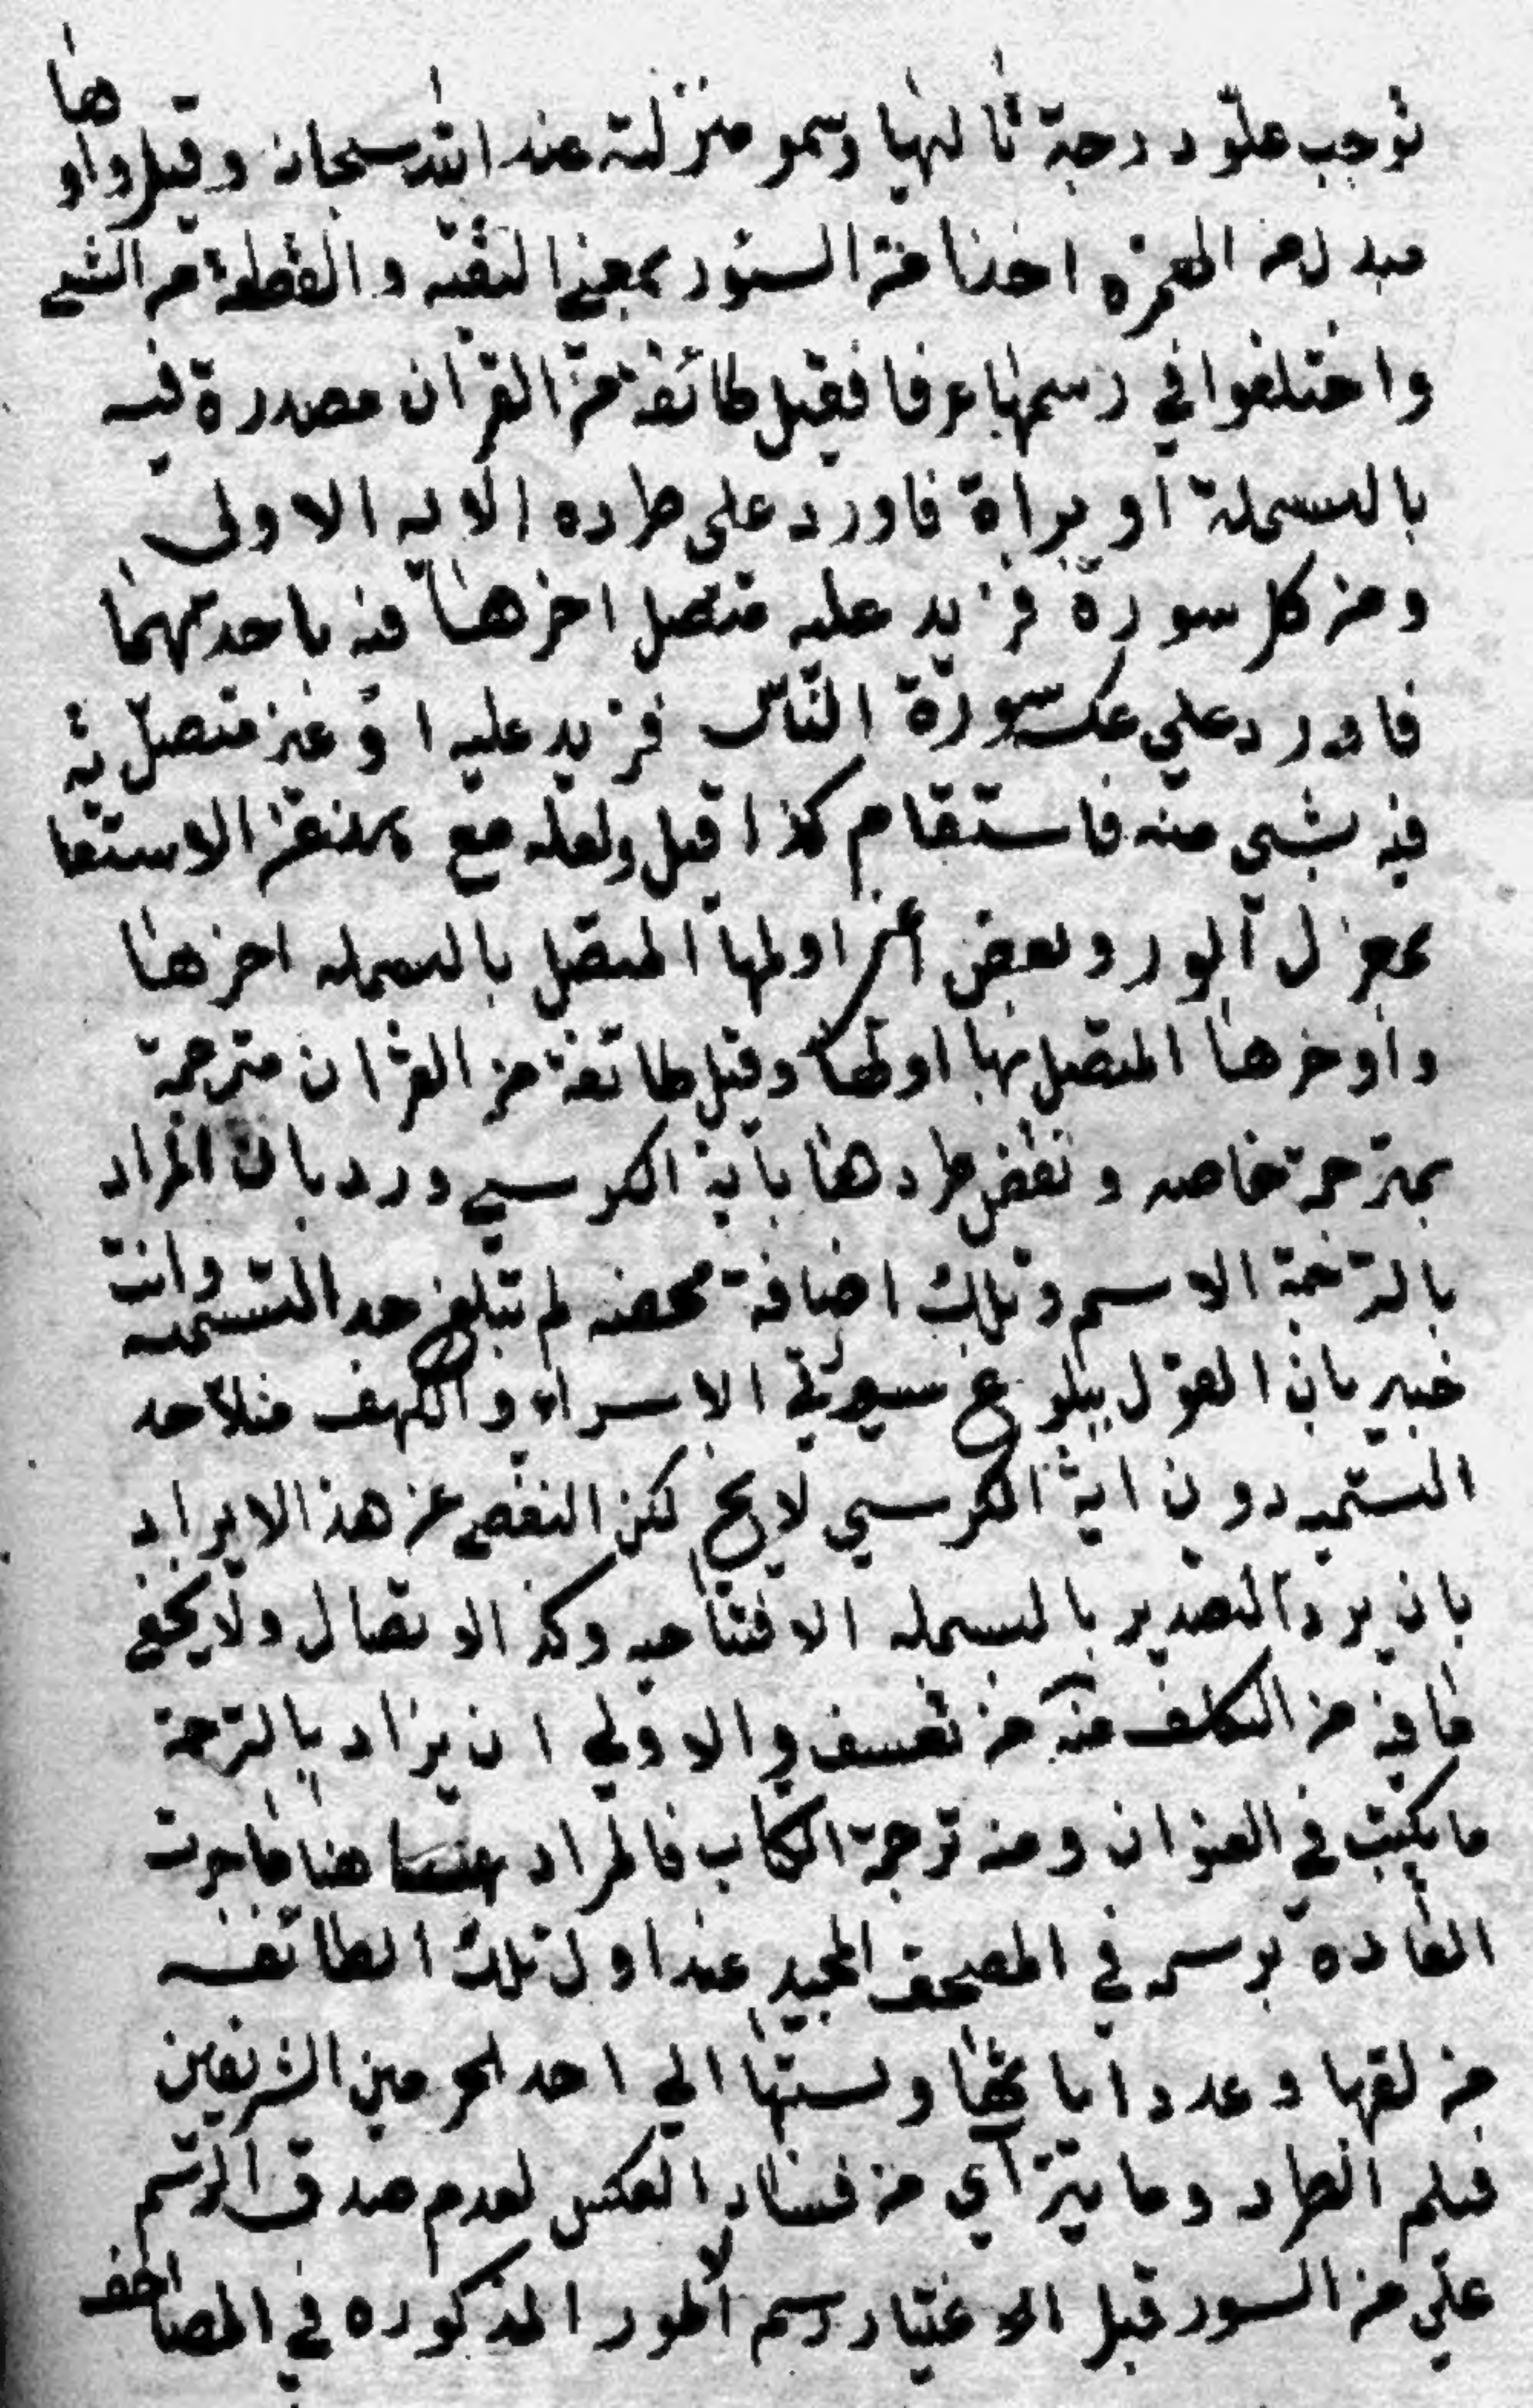 توجب علو درجة تاليها وسمو منزلته عند الله سبحانه وقيل واوها
مبدل من الهمزه اخذا من السؤر بمعنى البقيه والقطعة من الشي
واختلفوا في رسمها عرفا فقيل طائفة من القرآن مصدرة فيه
بالبسملة او براة فاورد على طرده الايه الاولى
ومن كل سورة فزيد عليه متصل اخرها فيه باحديهما
فاورد علي عكسه سورة الناس فزيد عليه او غير متصل ته
فيه بشي منه فاستقام كذا قيل ولعله مع عن الاستقا
بمعزل لورود بعض اعني اولها المتصل بالبسمله اخرها
واوخرها المتصل بها اولها وقيل طائفة من القرآن مترجمة
بترجمة خاصه ونقض طردها باية الكرسي ورد بان المراد
بالترجمة الاسم وتلك اضافة محضه لم تبلغ حد التسميه وانت
خبير بان القول ببلوغ سورتي الاسراء والكهف مثلا حد
التسميه دون اية الكرسي لا يخ لكن التفصي عن هذا الايراد
بان يرد التصدير بالبسمله الافتتاحيه وكذ الاتصال ولا يخفي
ما فيه من التكلف منه من تعسف والاولي ان يراد بالترجمة
ما يكتب في العنوان ومنه ترجمة الكتاب فالمراد هنا ما جرت
العاده برسمه في المصحف المجيد عند اول تلك الطائفه
من لقبها وعدد اياتها ونسبتها الي احد الحرمين الشريفين
فيلم الطرد وما يترآي من فساد العكس لعدم صدق الرسم
علي من السور قبل الاعتياد رسم الامور المذكوره في المصاحف